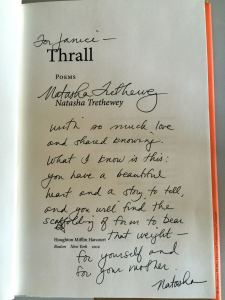 For Janice—
Thrall
POEMS
Natasha Trethewey
Natasha Trethewey
with so much love
and shared knowing.
What I know is this:
you have a beautiful
heart and a story to tell,
and you will find the
scaffolding of form to bear
that weight—
Houghton Mifflin Harcourt
Boston New York 2012
for yourself and
for your mother.
Natasha